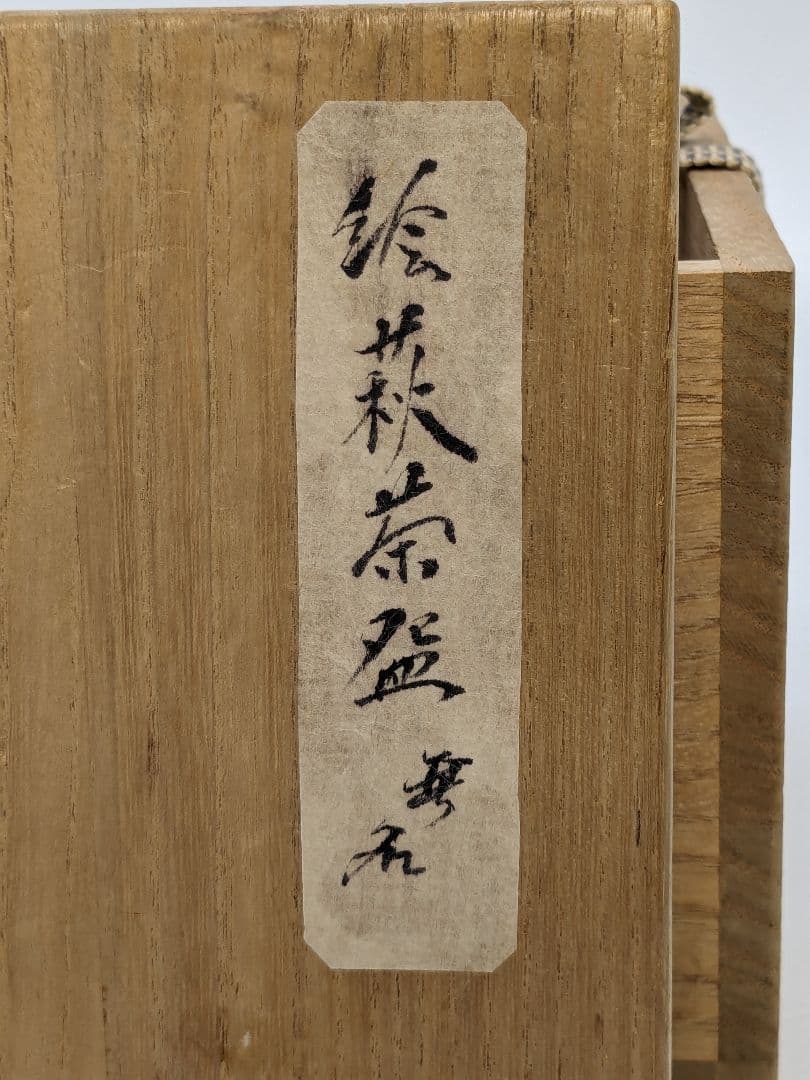 絵萩茶盌
無名